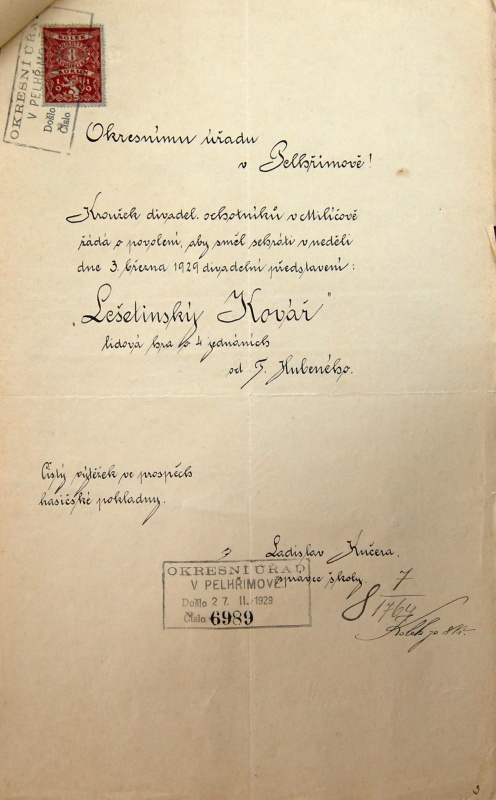 ČS
KOLEK
8
KORUN
1919
OKRESNÍ ÚŘAD
V PELHŘIMOVĚ
Došlo
Číslo
Okresnímu úřadu
v Pelhřimově!
Kroužek divadel. ochotníků v Milíčově
žádá o povolení, aby směl sehráti v neděli
dne 3. března 1929 divadelní představení:
„Lešetinský Kovář"
lidová hra o 4 jednáních
od F. Hubeného.
Čistý výtěžek ve prospěch
hasičské pokladny.
Ladislav Kučera,
správce školy.
OKRESNÍ ÚŘAD
V PELHŘIMOVĚ
Došlo 27. II. 1929
Číslo 6989
7
8 1764
Kolek
3